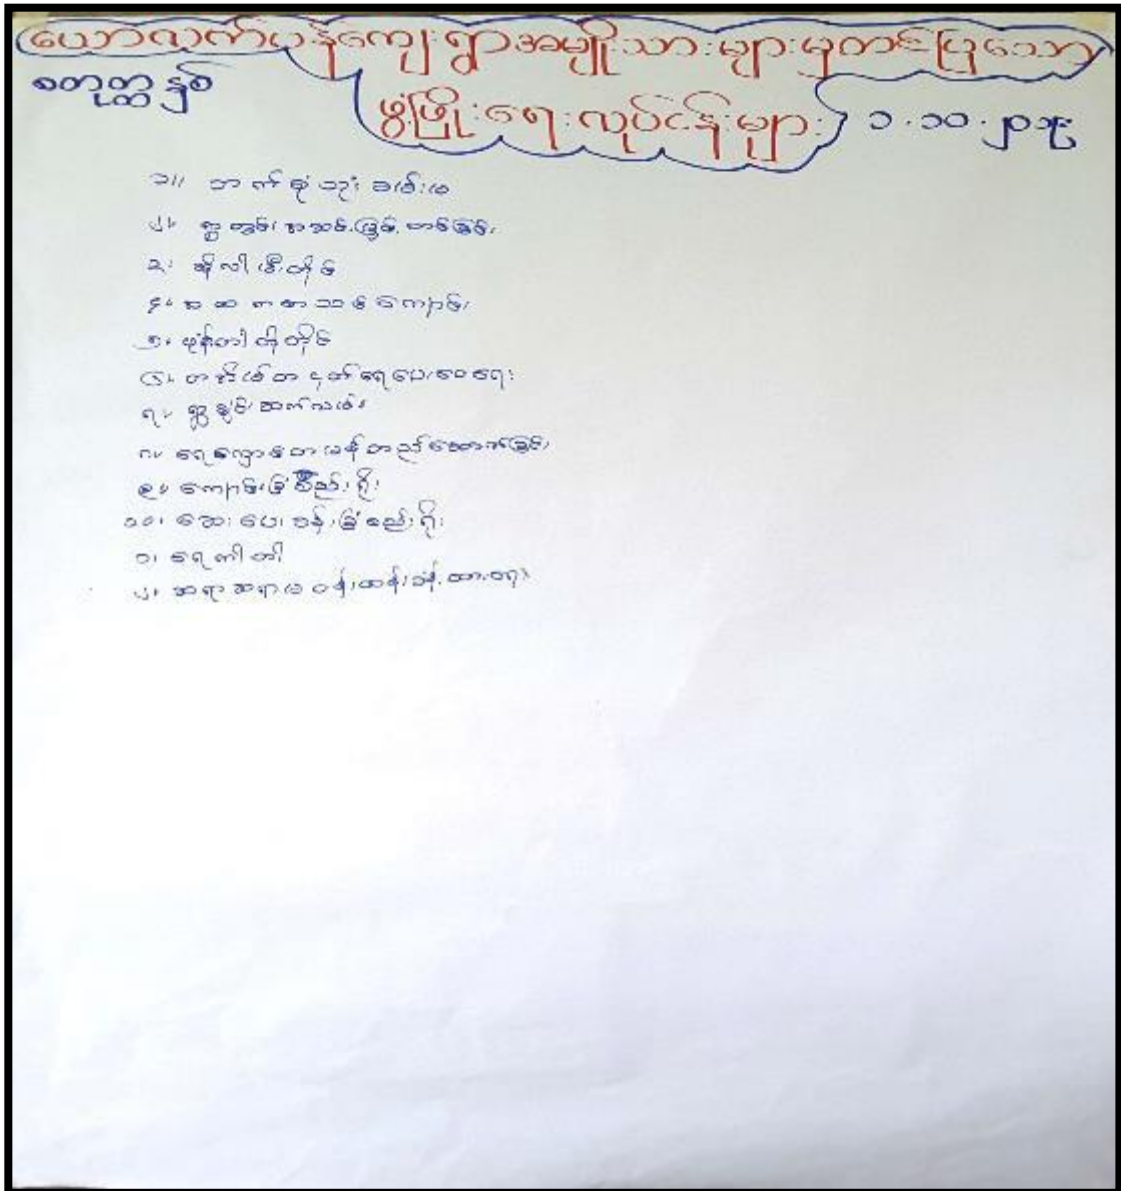 ယောလက်ပုန်ကျေးရွာအမျိုးသားများမှတင်ပြသော
စတုတ္ထနှစ်
ဖွံ့ဖြိုးရေးလုပ်ငန်းများ ၁.၁၀.၂၀၁၉
၁။ ဘက်စုံသုံးခန်းမ
၂။ ရွာတွင်းအဆင့်မြှင့်တင်ခြင်း
၃။ ဆိုလါမီးတိုင်
၄။ အထကစာသင်ကျောင်း
၅။ ဖုန်းတါတိုတိုင်
၆။ တအိမ်တငုတ်ရေပေးဝေရေး
၇။ ရွာချင်းဆက်လမ်း
၈။ ရေလှောင်တမန်တည်ဆောက်ခြင်း
၉။ ကျောင်းခြံစည်းရိုး
၁၀။ ဆေးပေးခန်းခြံစည်းရိုး
၁၊ ရေကါတါ
၂၊ ဆရာဆရာမဝန်ထမ်းခန့်ထားရေး